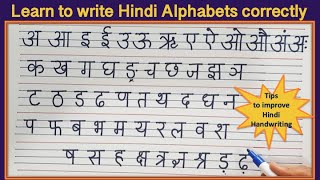 Learn to write Hindi Alphabets correctly
अ आ इ ई उ ऊ ऋ ए ऐ ओ औ अं अः
क ख ग घ ङ च छ ज झ ञ
ट ठ ड ढ ण त थ द ध न
प फ ब भ म य र ल व श
ष स ह क्ष त्र ज्ञ श्र ड़ ढ़
Tips
to improve
Hindi
Handwriting